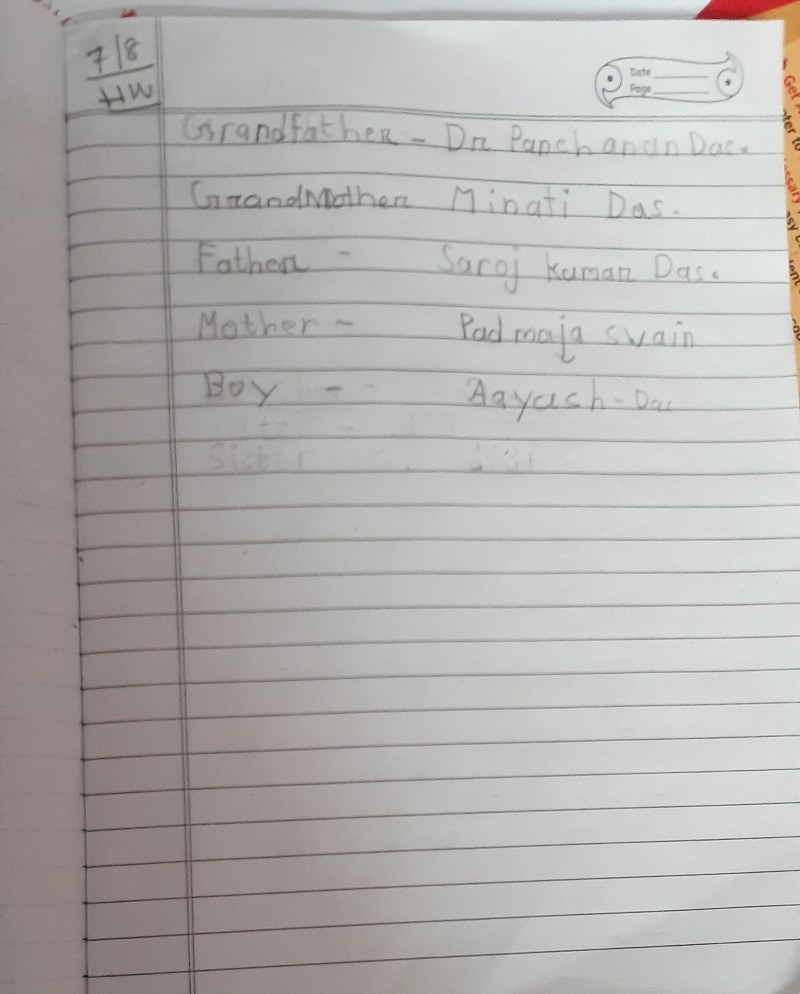 7/8
HW
Date
Page
Grandfather - Dr Panchanan Das.
GrandMother Minati Das.
Father - Saroj kumar Das.
Mother - Padmaja swain
Boy - - Aayush - Das
Sister
Get